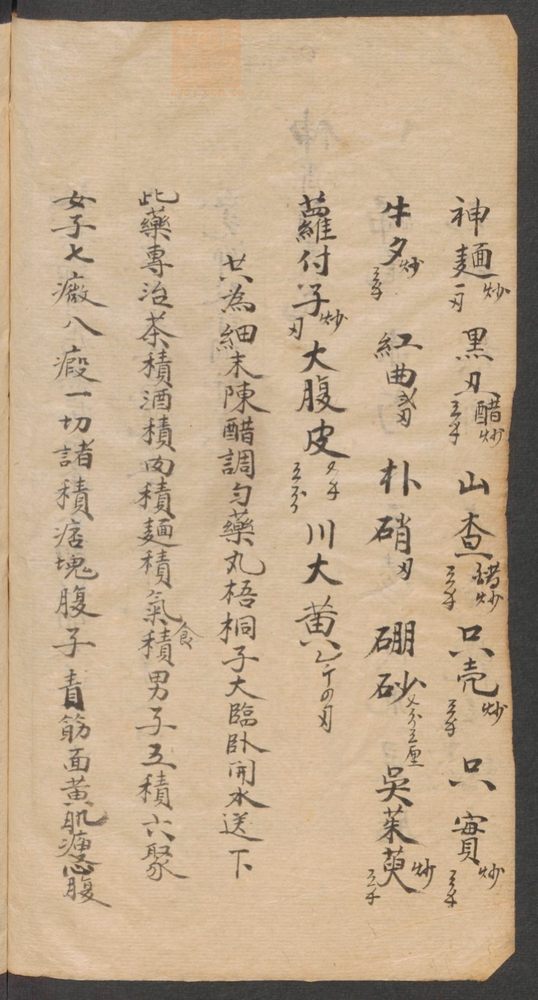 神麯炒一刄 黑丑醋炒三千 山查醋炒三千 只壳炒三千 只實炒三千
牛夕炒三千 紅曲 朴硝刄 硼砂 吳茱萸炒三千
蘿付子炒刄 大腹皮 川大黃
共為細末陳醋調勻藥丸梧桐子大臨臥開水送下
此藥專治茶積酒積肉積麵積氣積食男子五積六聚
女子七癥八瘕一切諸積痞塊腹子青筋面黃肌瘦心腹